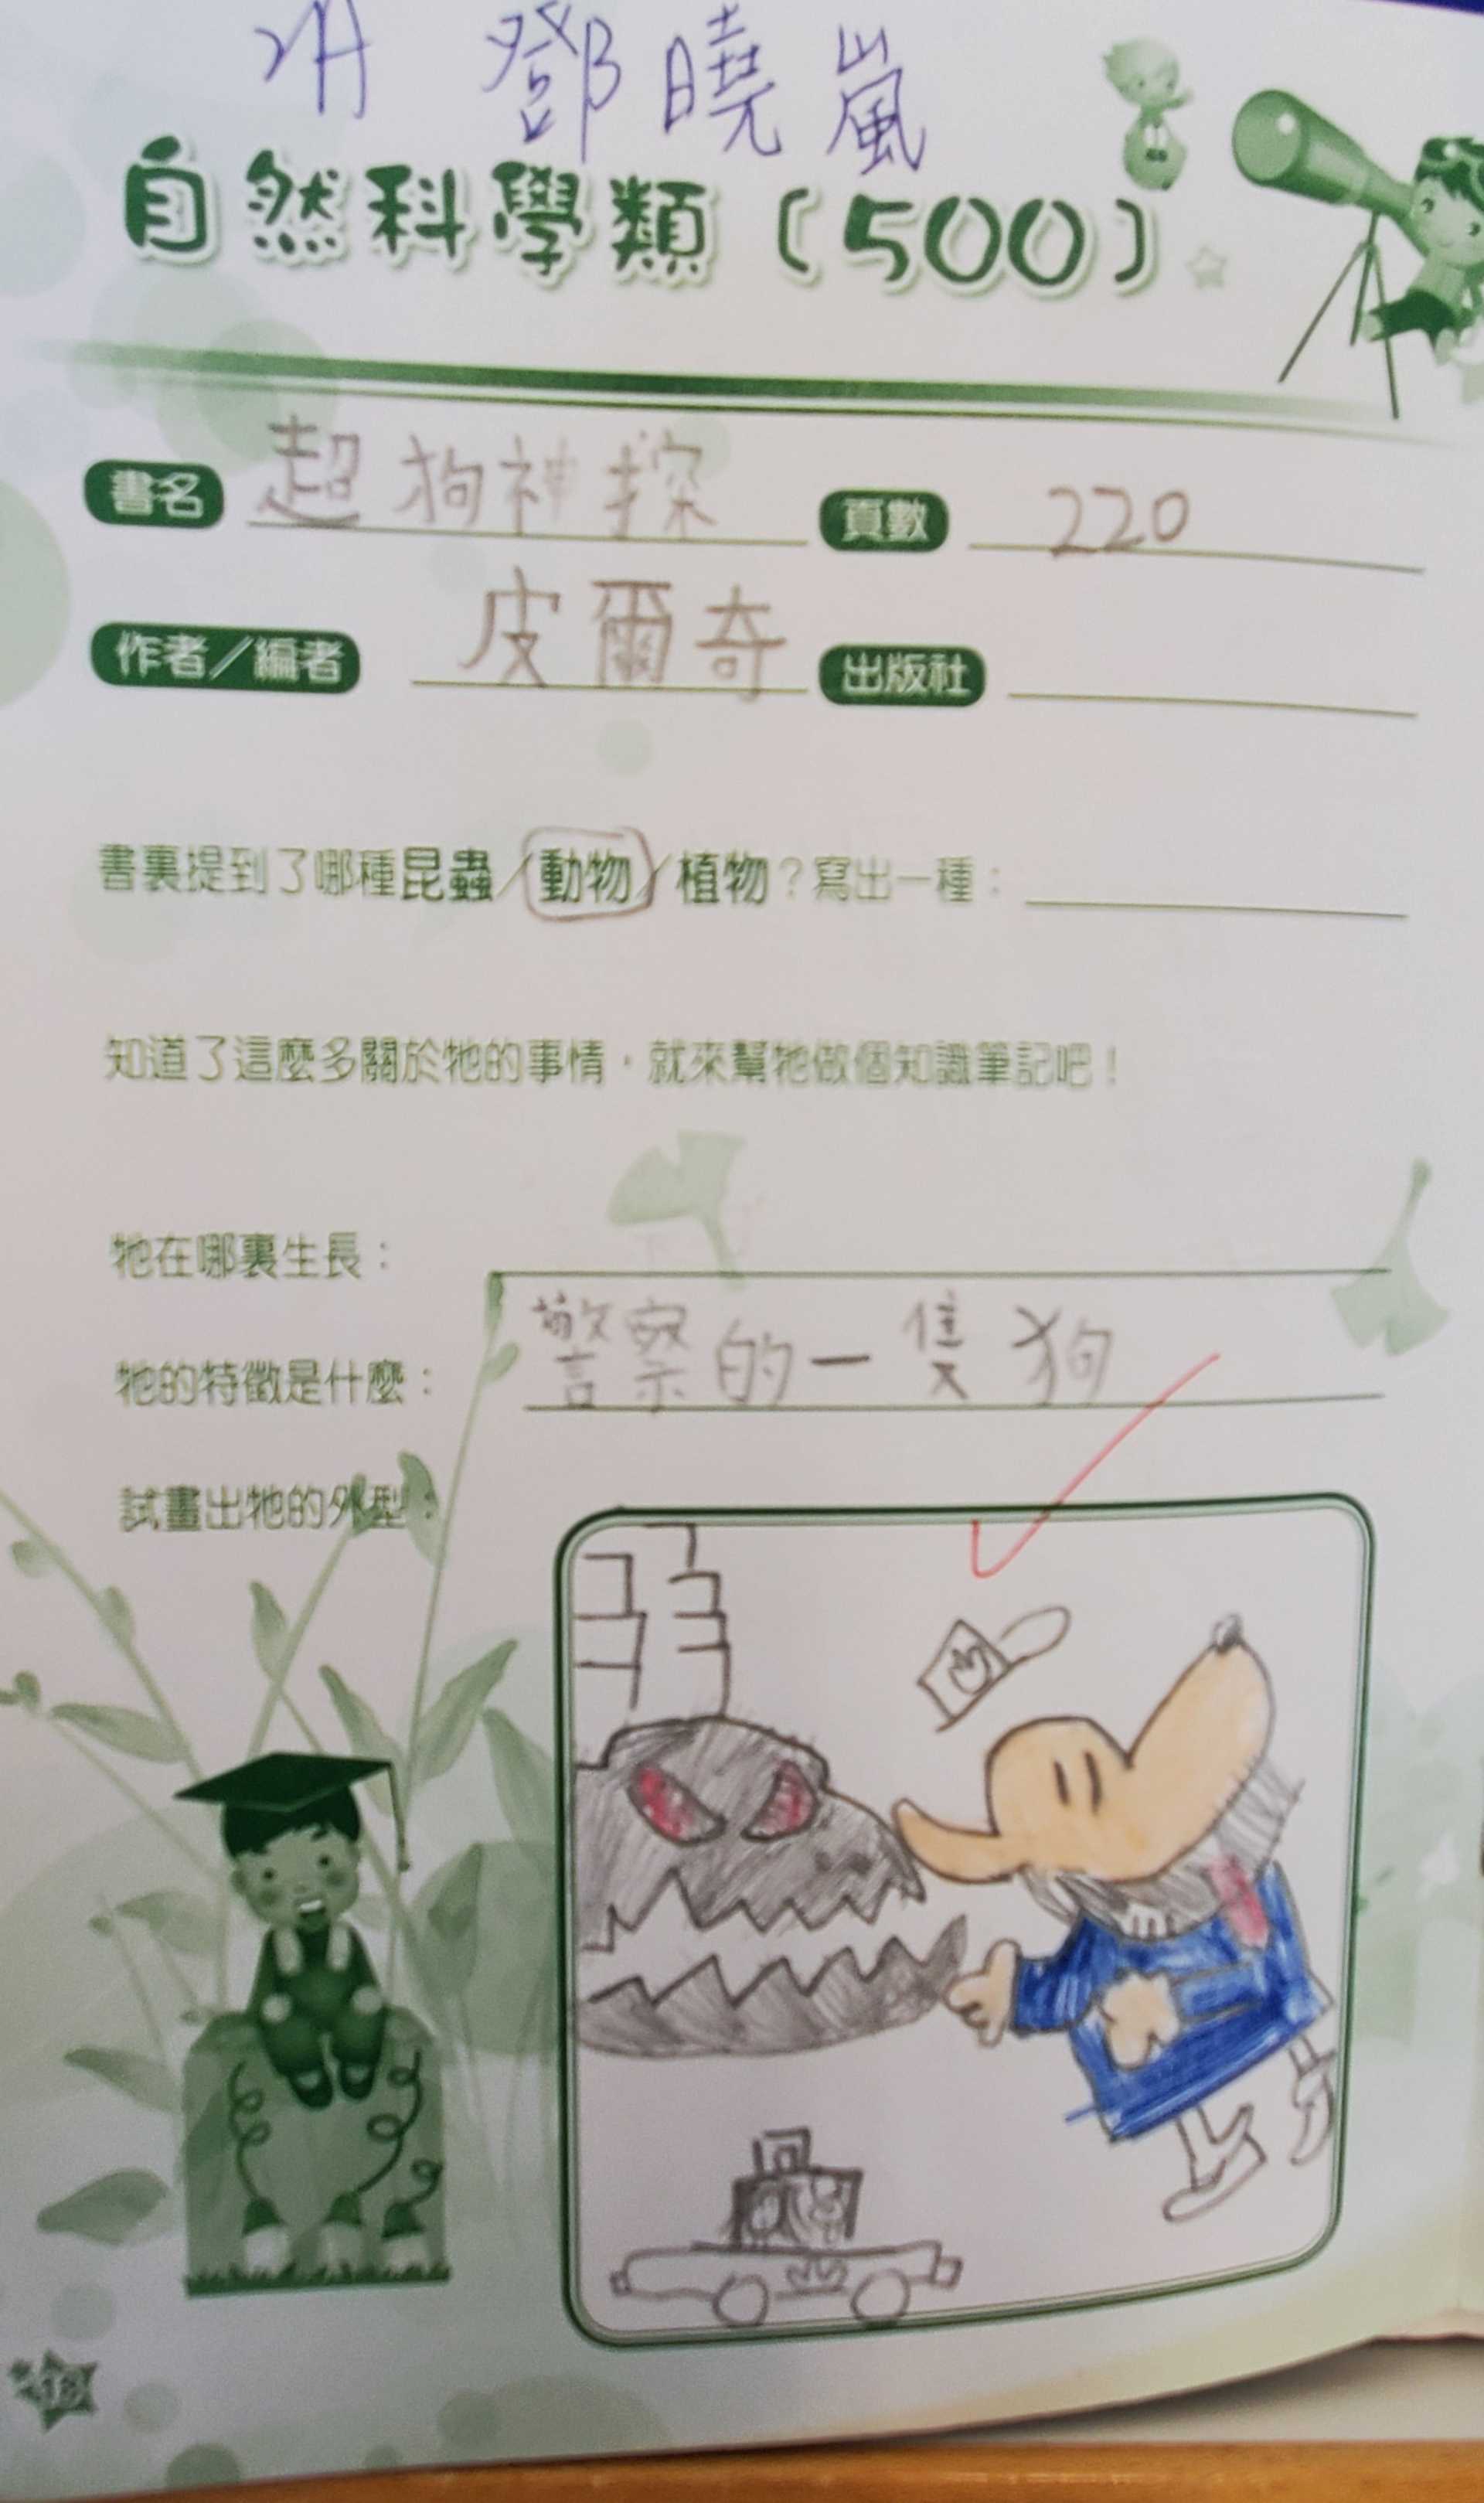 2A 鄧曉嵐
自然科學類〔500〕
書名 超狗神探 頁數 220
作者／編者 皮爾奇 出版社
書裏提到了哪種昆蟲／動物／植物？寫出一種：
知道了這麼多關於牠的事情，就來幫牠做個知識筆記吧！
牠在哪裏生長：
牠的特徵是什麼：警察的一隻狗
試畫出牠的外型：